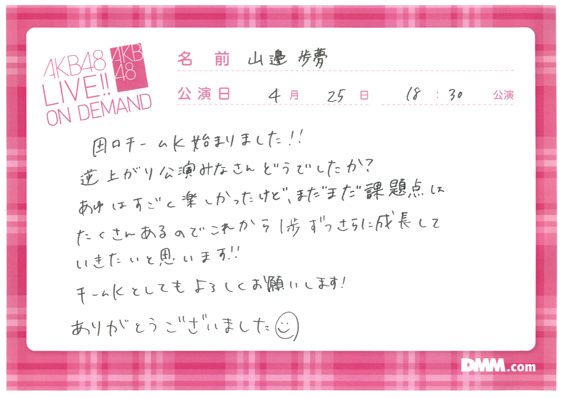 AKB48
LIVE!!
ON DEMAND
AKB
48
名前 山邊歩夢
公演日 4月 25日 18:30 公演
田口チームK始まりました!!
逆上がり公演みなさんどうでしたか?
あゆはすごく楽しかったけど、まだまだ課題点は
たくさんあるのでこれから1歩ずつさらに成長して
いきたいと思います!!
チームKとしてもよろしくお願いします!
ありがとうございました
DMM.com